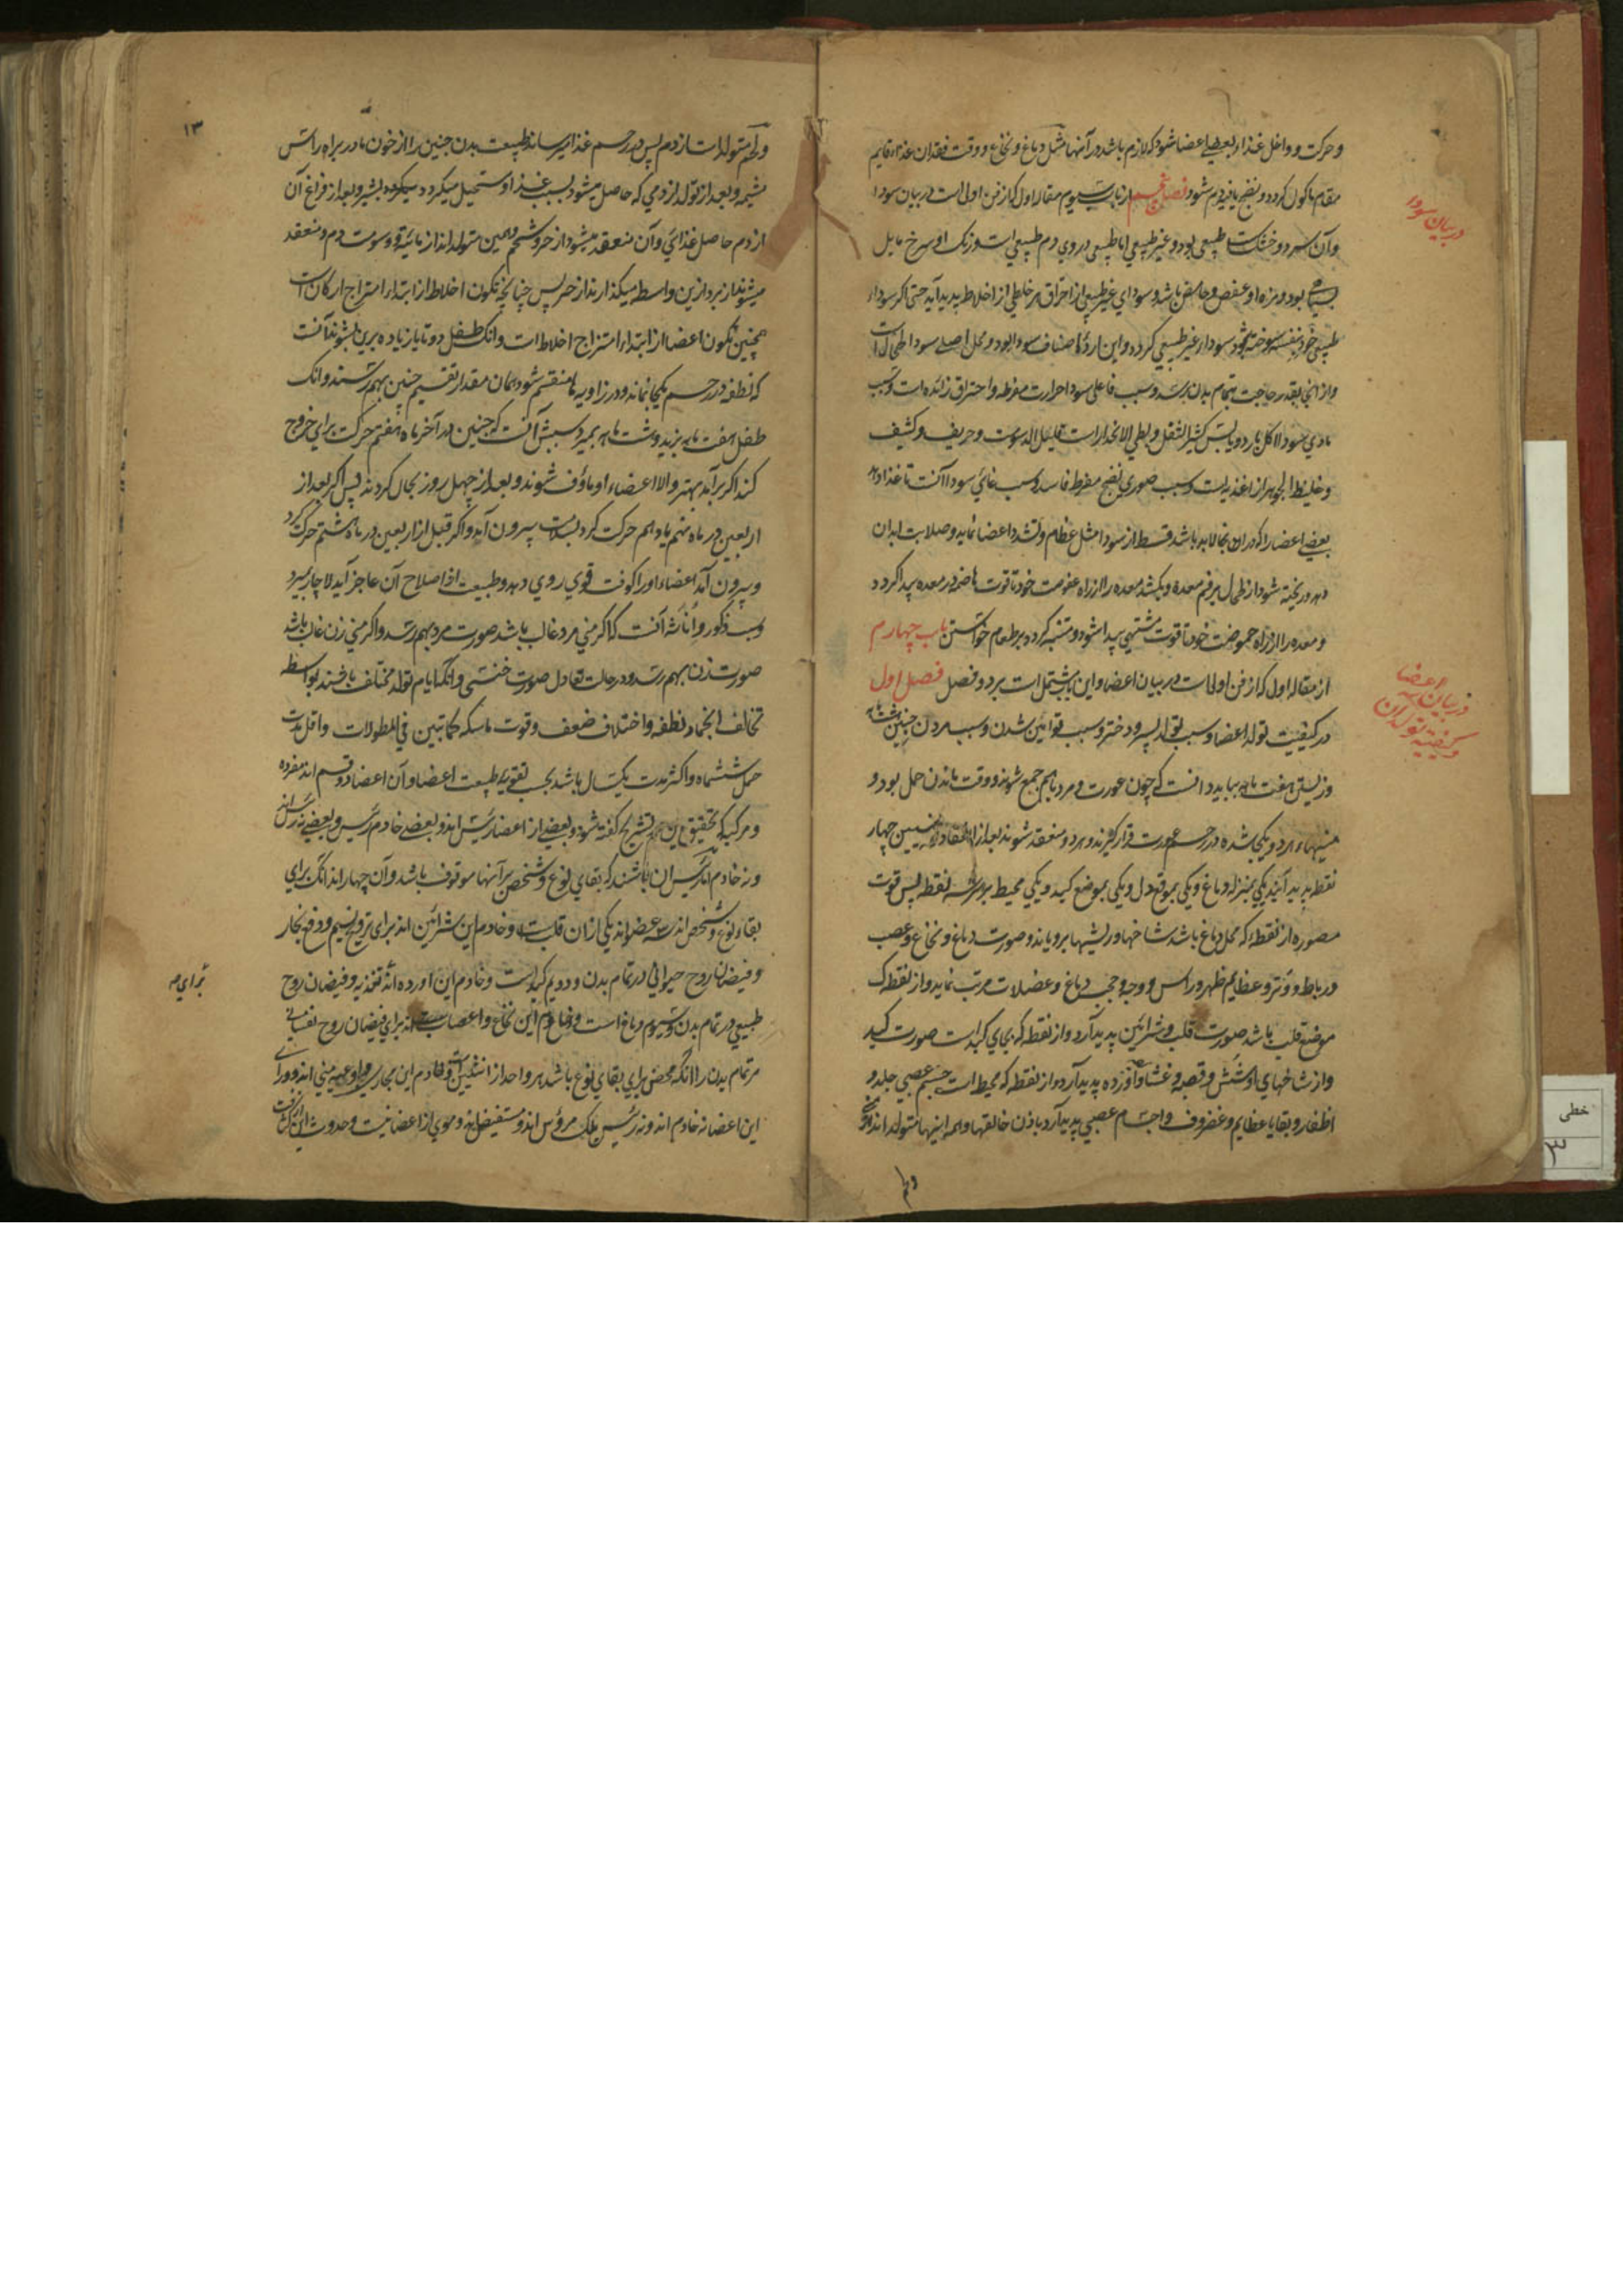 و حرکت و داخل غذاء بعضی اعضا شود که لازم باشد در آنها مثل دماغ و نخاع و وقت فقدان غذاء قایم
مقام ماکول کردد و نضج یافته دم شود فصل پنجم از باب سیوم مقاله اول که از فن اولی است در بیان سودا
وآن سرد و خشک است طبیعی بود و غیر طبیعی اما طبیعی دردی دم طبیعی است و رنک او سرخ مایل
بسیاهی بود و مزه او عفص و حامض باشد و سودای غیر طبیعی از احراق هر خلطی از اخلاط پدید آید حتی اکر سوداء
طبیعی خود بنفسه سوخته شود سوداء غیر طبیعی کردد و این اردء اصناف سودا بود و محل اصلی سودا طحال است
و از انجا بقدر حاجت بتمام بدن برسد و سبب فاعلی سودا حرارت مفرطه و احتراق زائده است و سبب
مادی سودا اکل بارد و یابس کثیر الثقل و بطی الانحدار است قلیل الدسومت و حریف و کثیف
و غلیظ الجوهر از اغذیه است و سبب صوری نضج مفرط فاسد و سبب غائی سودا آنست تا غذا دهد
بعضی اعضا را که در این نجا لابد باشد قسط از سودا مثل عظام و تشدد اعضا نماید و صلابت ابدان
دهد و ریخته شود از طحال بر فم معده و بکشد معده را از راه عفوصت خود تا قوت هاضمه در معده پیدا کردد
و معده را از راه حموضت خود تا قوت مشتهی پیدا شود و متنبه کردد بر طعام خواستن باب چهارم
از مقاله اول که از فن اولی است در بیان اعضا و این باب مشتمل است بر دو فصل فصل اول
در کیفیت تولد اعضا و سبب تولد پسر و دختر و سبب توامین شدن و سبب مردن جنین هشت ماهه
و زیستن هفت ماهه بباید دانست که چون عورت و مرد باهم جمع شوند و وقت ماندن حمل بود و
منیها هردو یکجا شده در رحم عورت قرار کیرند و هردو منعقد شوند بعد از انعقاد منیین چهار
نقطه پدید آیند یکی بمنزله دماغ و یکی بموقع دل و یکی بموضع کبد و یکی محیط بر هر سه نقطه پس قوت
مصوره از نقطه که محل دماغ باشد شاخها و ریشها برویاند و صورت دماغ و نخاع و عصب
و رباط و وتر و عظایم ظهر و راس و وجه و حجب دماغ و عضلات مرتب نماید و از نقطه که
موضع قلب باشد صورت قلب و شرائین پدید آرد و از نقطه که بجای کبد است صورت کبد
و از شاخهای او شش و قصبه و غشا و آورده پدید آرد و از نقطه که محیط است جسم عصبی جلد و
اظفار و بقایا عظایم و غضروف و اجسام عصبی پدید آرد باذن خالقها و همه اینها متولد اند از منی
ولحم
در بیان سودا
در بیان اعضا
و کیفیة تولد آن
خطی
۳
۱۳
و لحم متولد است از دم پس در رحم غذا میرساند طبیعت بدن جنین را از خون مادر براه راتس
مشیمه و بعد از تولد از دمی که حاصل میشود بسبب غذا و مستحیل میکردد بشیر و بعد از فراغ آن
از دم حاصل غذائی و آن منعقد میشود از حر و شحم و سمین متولد اند از مائیة و دسومت دم و منعقد
میشوند از برد ازین واسطه میکذارند از حر پس چنانچه تکون اخلاط از ابتداء امتزاج ارکان است
همچنین تکون اعضا از ابتداء امتزاج اخلاط است و آنکه طفل دو تا یا زیاده برین باشند آنست
که نطفه در رحم یکجا نماند و در زاویه ها منقسم شود بهمان مقدار تقسیم جنین بهم رسند و آنکه
طفل هفت ماهه بزید و هشت ماهه بمیرد سببش آنست که جنین در آخر ماه هفتم حرکت برای خروج
کند اکر برآمد بهتر والا اعضاء او ماؤف شوند و بعد از چهل روز بحال کردند پس اکر بعد از
اربعین در ماه نهم یا دهم حرکت کرد بسلامت بیرون آید و اکر قبل از اربعین در ماه هشتم حرکت کرد
و بیرون آمد اعضاء او را کوفت قوی روی دهد و طبیعت از اصلاح آن عاجز آید لاچار بمیرد
و سبب ذکور و اناث آنست که اکر منی مرد غالب باشد صورت مرد بهم رسد و اکر منی زن غالب باشد
صورت زن بهم رسد و در حالت تعادل صورت خنثی و آنکه ایام تولد مختلف باشند بواسطه
تخالف انجماد نطفه و اختلاف ضعف و قوت ماسکه کما تبین فی المطولات و اقل مدت
حمل ششماه و اکثر مدت یکسال باشد بحسب تقویه طبیعت اعضا و آن اعضا دو قسم اند مفرده
و مرکبه که تحقیق این در تشریح کفته شود و بعضی از اعضا رئیس اند و بعضی خادم رئیس و بعضی نه رئیس اند
و نه خادم اما رئیس آن باشند که بقای نوع و شخص بر آنها موقوف باشد و آن چهار اند آنکه برای
بقاء نوع و شخص اند سه عضو اند یکی از ان قلب است و خادم این شرائین اند برای ترویح نسیم و دفع بخار
و فیضان روح حیوانی در تمام بدن و دویم کبد است و خادم این اورده اند تغذیه و فیضان روح
طبیعی در تمام بدن و سیوم دماغ است و خادم این نخاع و اعصاب اند برای فیضان روح نفسانی
مر تمام بدن را آنکه محض برای بقای نوع باشد هر واحد از انثیین است و خادم این مجاری و اوعیه منی اند و ورای
این اعضا نه خادم اند و نه رئیس بلکه مرؤس اند و مستفیض اند و موی از اعضا نیست و حدوث
برای